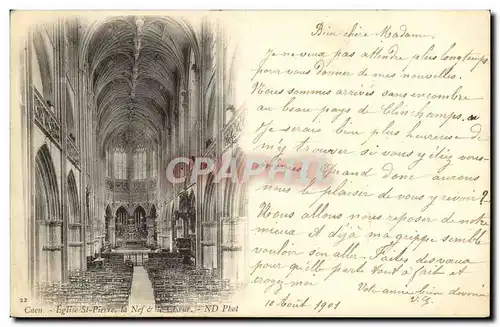 Bien chère Madame,
Je ne veux pas attendre plus longtemps
pour vous donner de mes nouvelles.
Nous sommes arrivés sans encombre
au beau pays de Clinchamps.
Je serais bien plus heureuse de
m'y trouver si vous y étiez vous-
Quand donc aurons
nous le plaisir de vous y revoir ?
Nous allons nous reposer de notre
mieux et déjà ma grippe semble
vouloir s'en aller. Faites des vœux
pour qu'elle parte tout à fait et
croyez-moi
Votre bien
10 Août 1901
CPARAMA
22
Caen. - Eglise St-Pierre, la Nef & le Chœur. - ND Phot